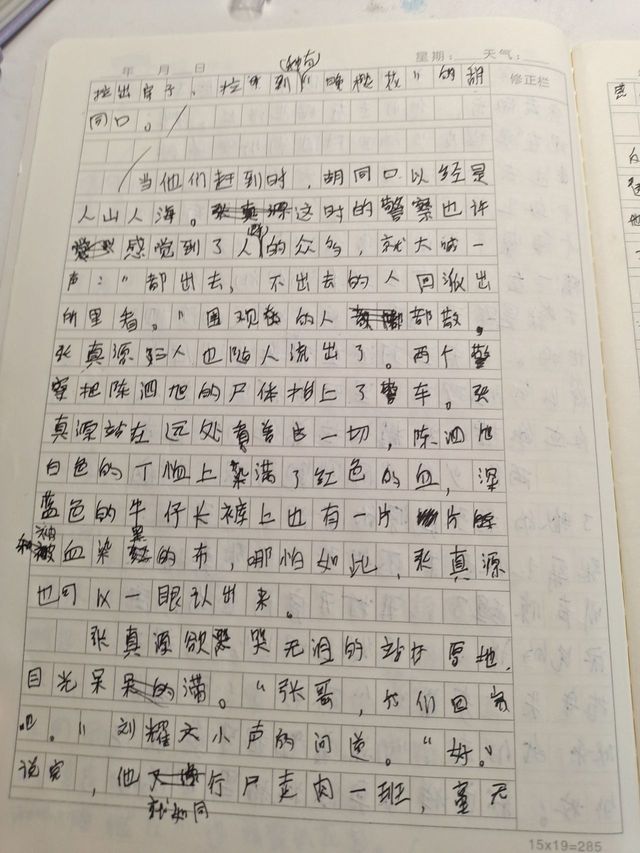 年 月 日 星期： 天气：
修正栏
种有
拉出房子，拉到"晚樱花"的胡
同口。
当他们赶到时，胡同口以经是
人山人海。这时的警察也许
感觉到了人的众多，就大喊一
声："都出去，不出去的人回派出
所里看。"围观的人都散，
张真源三人也随人流出了。两个警
察把陈泗旭的尸体抬上了警车。张
真源站在远处看着这一切，陈泗旭
白色的丁恤上染满了红色的血，深
蓝色的牛仔长裤上也有一片片
被血染黑的布，哪怕如此，张真源
也可以一眼认出来。
张真源欲哭无泪的站在原地，
目光呆滞。"张哥，我们回家
吧。"刘耀文小声的问道。"好。"
说完，他就如同行尸走肉一班，毫无
15×19=285